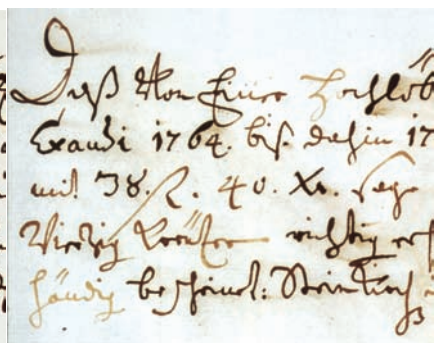 Daß Von Einer Hochlöb
Exaudi 1764. bis dahin 17
mit 38. f. 40. Xr. sage
Vierzig Kreüzer richtig er
händig bescheinet: Steinkirch